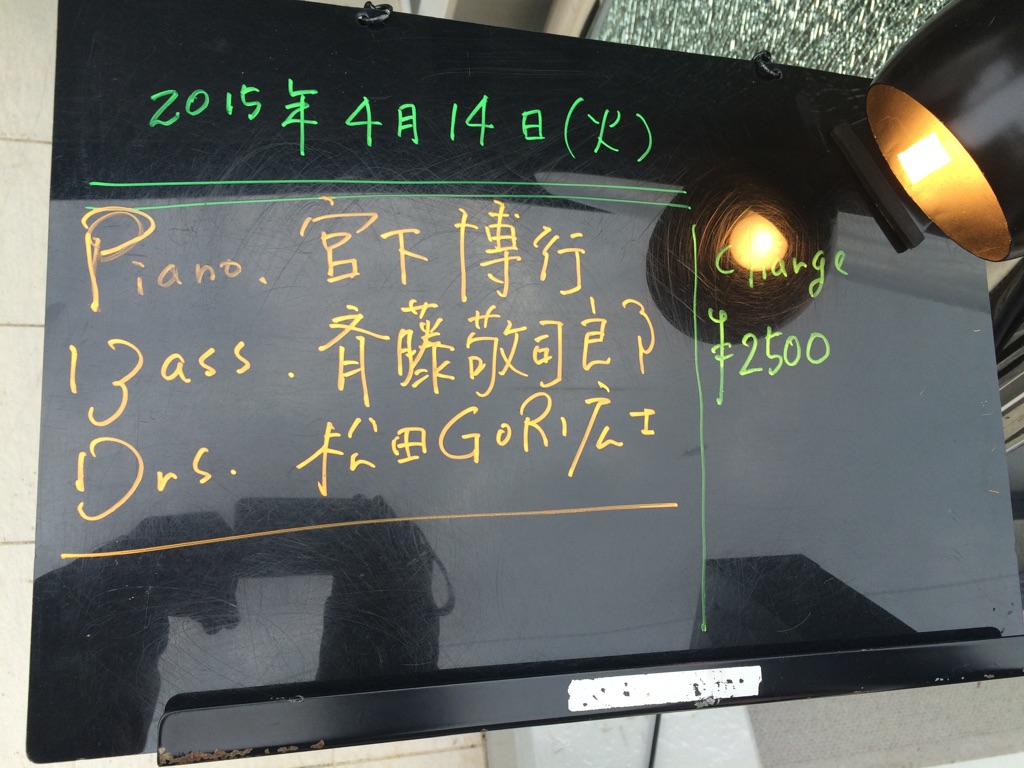 2015年4月14日(火)
Piano. 宮下博行
Bass. 斉藤敬司郎
Drs. 松田GoRi広士
Charge
¥2500